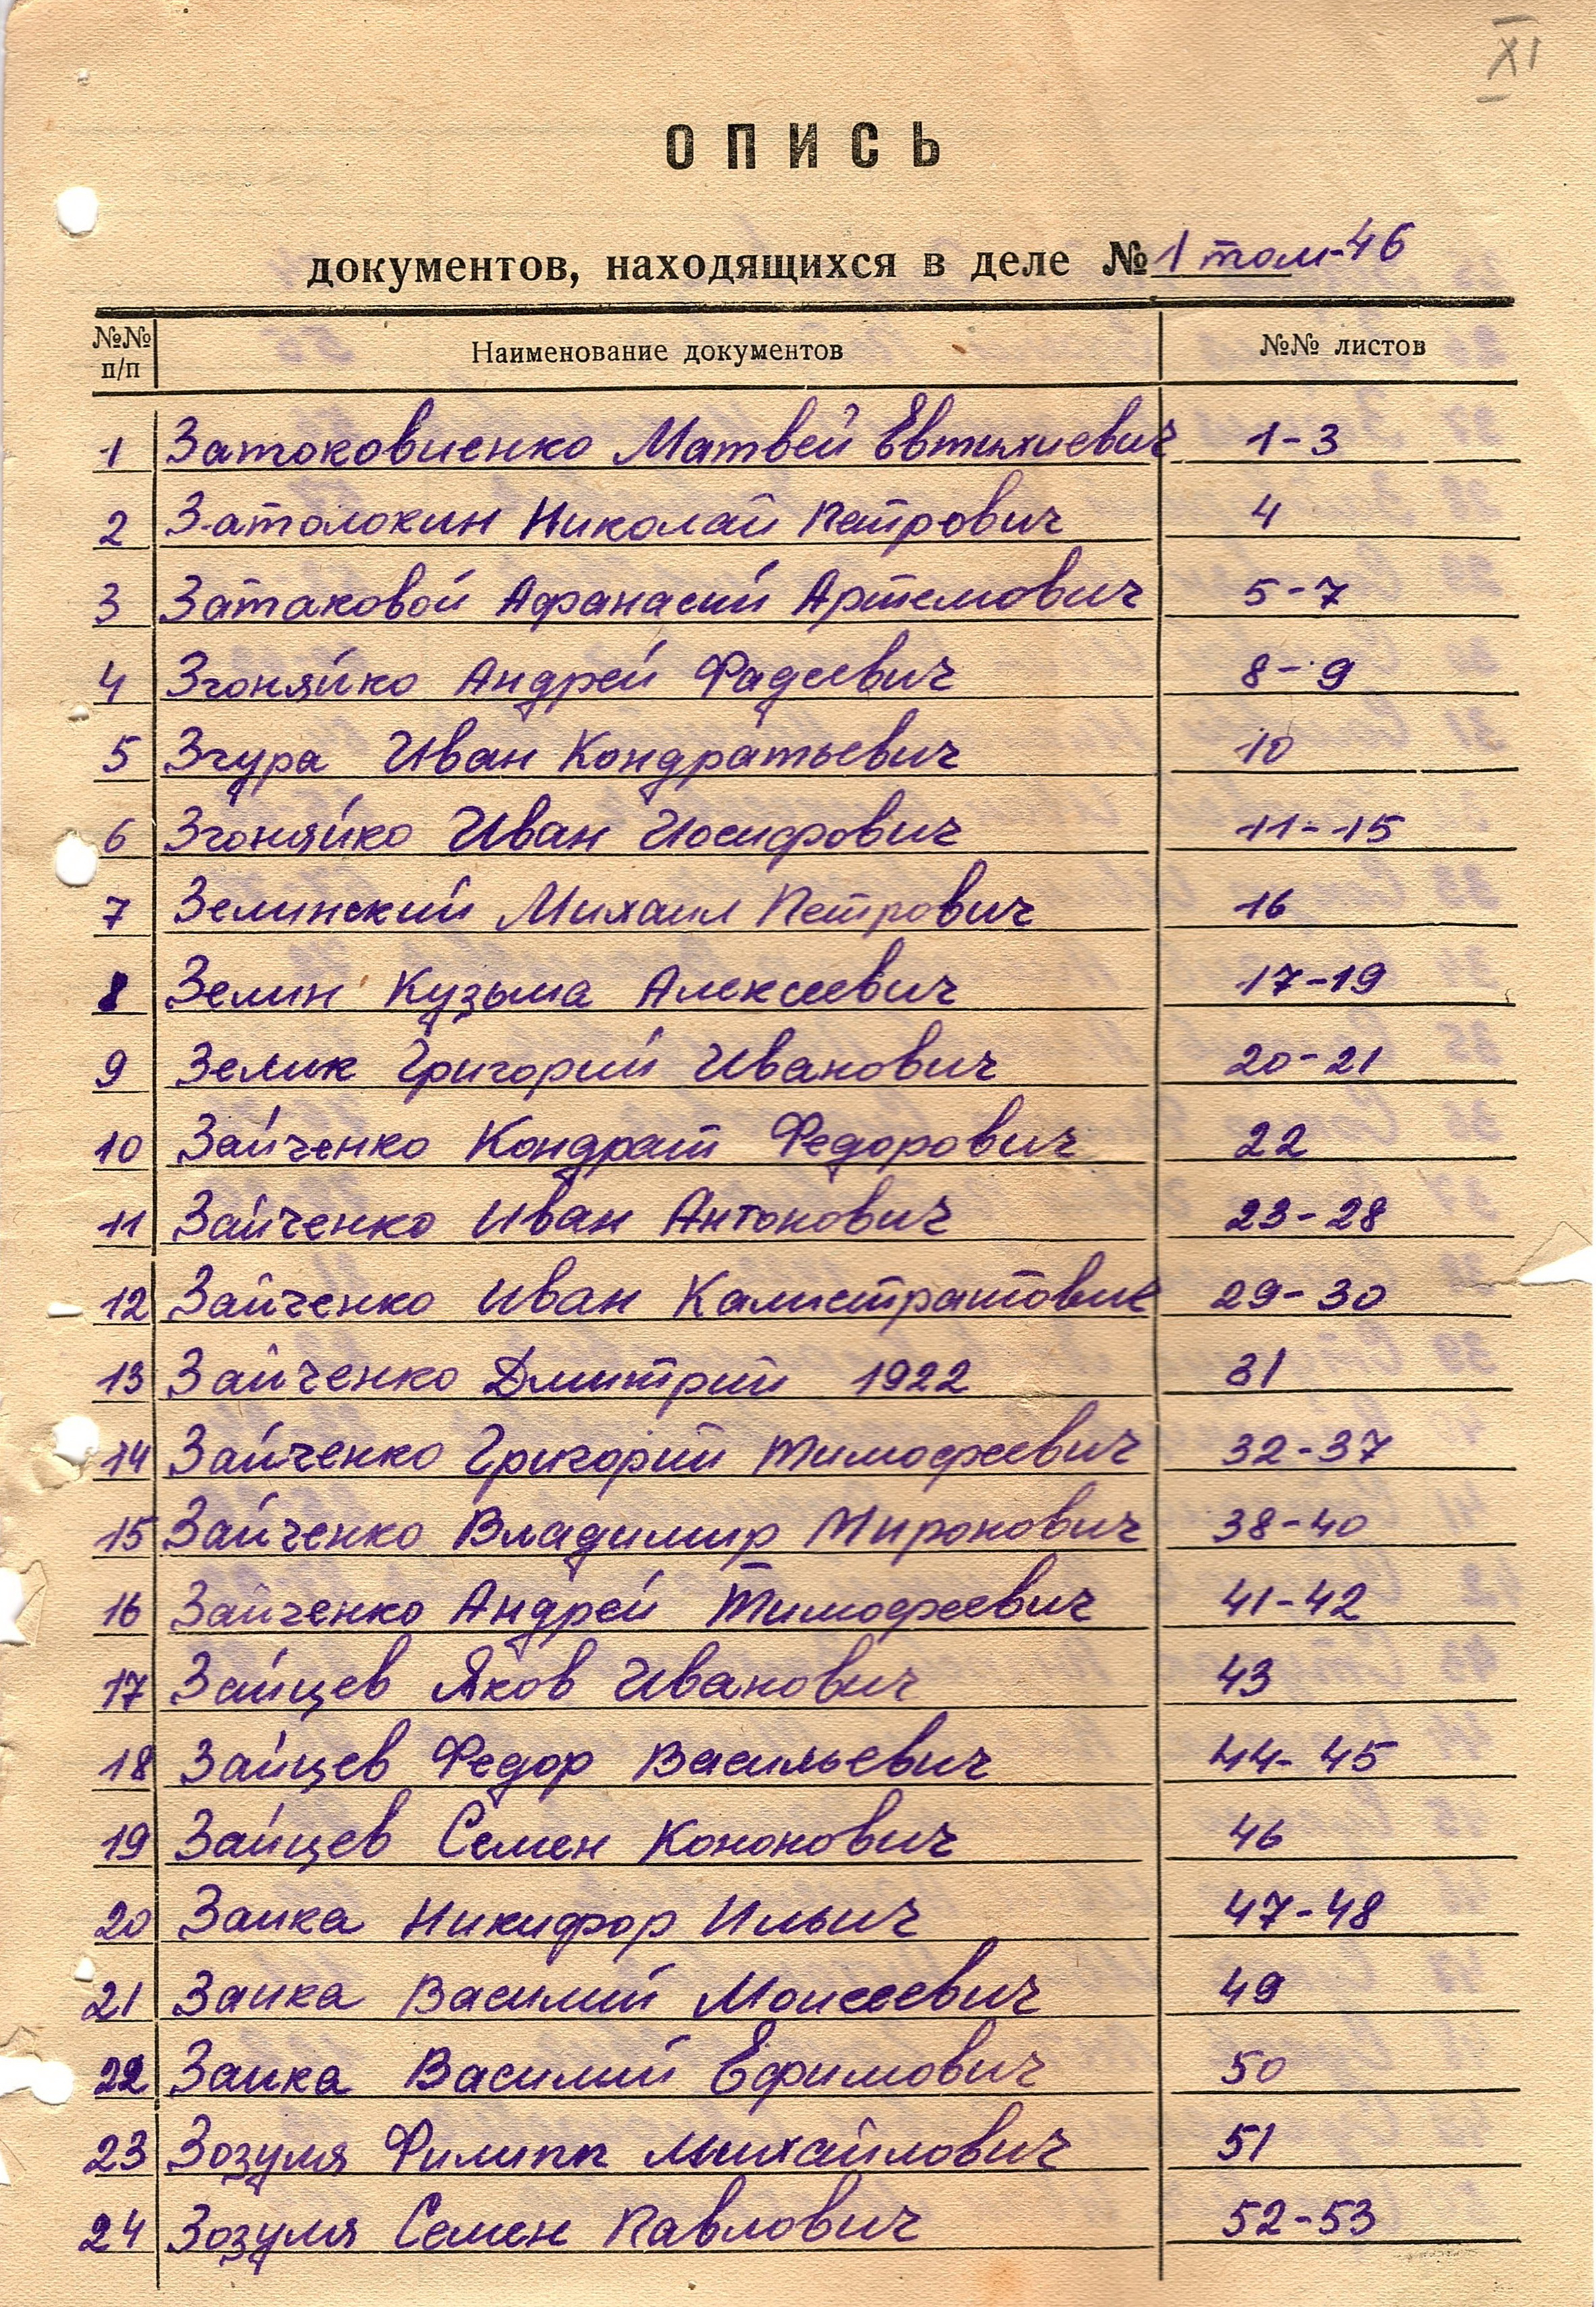 XI
ОПИСЬ
документов, находящихся в деле № 1 том-46
№№ п/п Наименование документов №№ листов
1 Затоковиенко Матвей Евтихиевич 1-3
2 Затолокин Николай Петрович 4
3 Затаковой Афанасий Артемович 5-7
4 Згоняйко Андрей Фадеевич 8-9
5 Згура Иван Кондратьевич 10
6 Згоняйко Иван Иосифович 11-15
7 Зелинский Михаил Петрович 16
8 Зелин Кузьма Алексеевич 17-19
9 Зелик Григорий Иванович 20-21
10 Зайченко Кондрат Федорович 22
11 Зайченко Иван Антонович 23-28
12 Зайченко Иван Калистратович 29-30
13 Зайченко Дмитрий 1922 31
14 Зайченко Григорий Тимофеевич 32-37
15 Зайченко Владимир Миронович 38-40
16 Зайченко Андрей Тимофеевич 41-42
17 Зайцев Яков Иванович 43
18 Зайцев Федор Васильевич 44-45
19 Зайцев Семен Кононович 46
20 Заика Никифор Ильич 47-48
21 Заика Василий Моисеевич 49
22 Заика Василий Ефимович 50
23 Зозуля Филипп Михайлович 51
24 Зозуля Семен Павлович 52-53